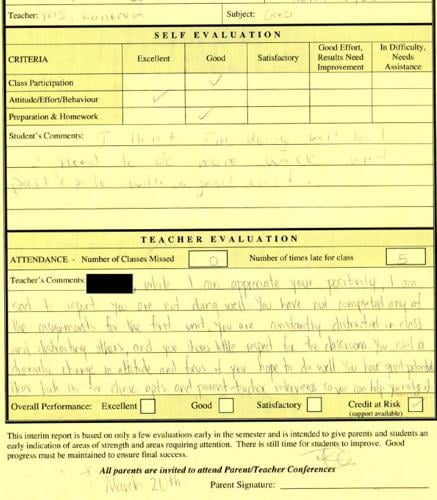 Teacher: Ms. Subject: Geo
SELF EVALUATION
CRITERIA Excellent Good Satisfactory Good Effort, Results Need Improvement In Difficulty, Needs Assistance
Class Participation ✓
Attitude/Effort/Behaviour ✓
Preparation & Homework ✓
Student's Comments: I think I'm doing well but
I need to do more work and
participate with a good
TEACHER EVALUATION
ATTENDANCE - Number of Classes Missed 0 Number of times late for class 5
Teacher's Comments: , while I can appreciate your positivity, I am
sad to report you are not doing well. You have not completed any of
the assignments for the first unit, you are constantly distracted in class
and distracting others, and you show little respect for the classroom. You need a
dramatic change in attitude and focus if you hope to do well. You have great potential
and parent-teacher interviews so we can help you
Overall Performance: Excellent Good Satisfactory Credit at Risk ✓
(support available)
This interim report is based on only a few evaluations early in the semester and is intended to give parents and students an
early indication of areas of strength and areas requiring attention. There is still time for students to improve. Good
progress must be maintained to ensure final success.
All parents are invited to attend Parent/Teacher Conferences
March 26th Parent Signature: